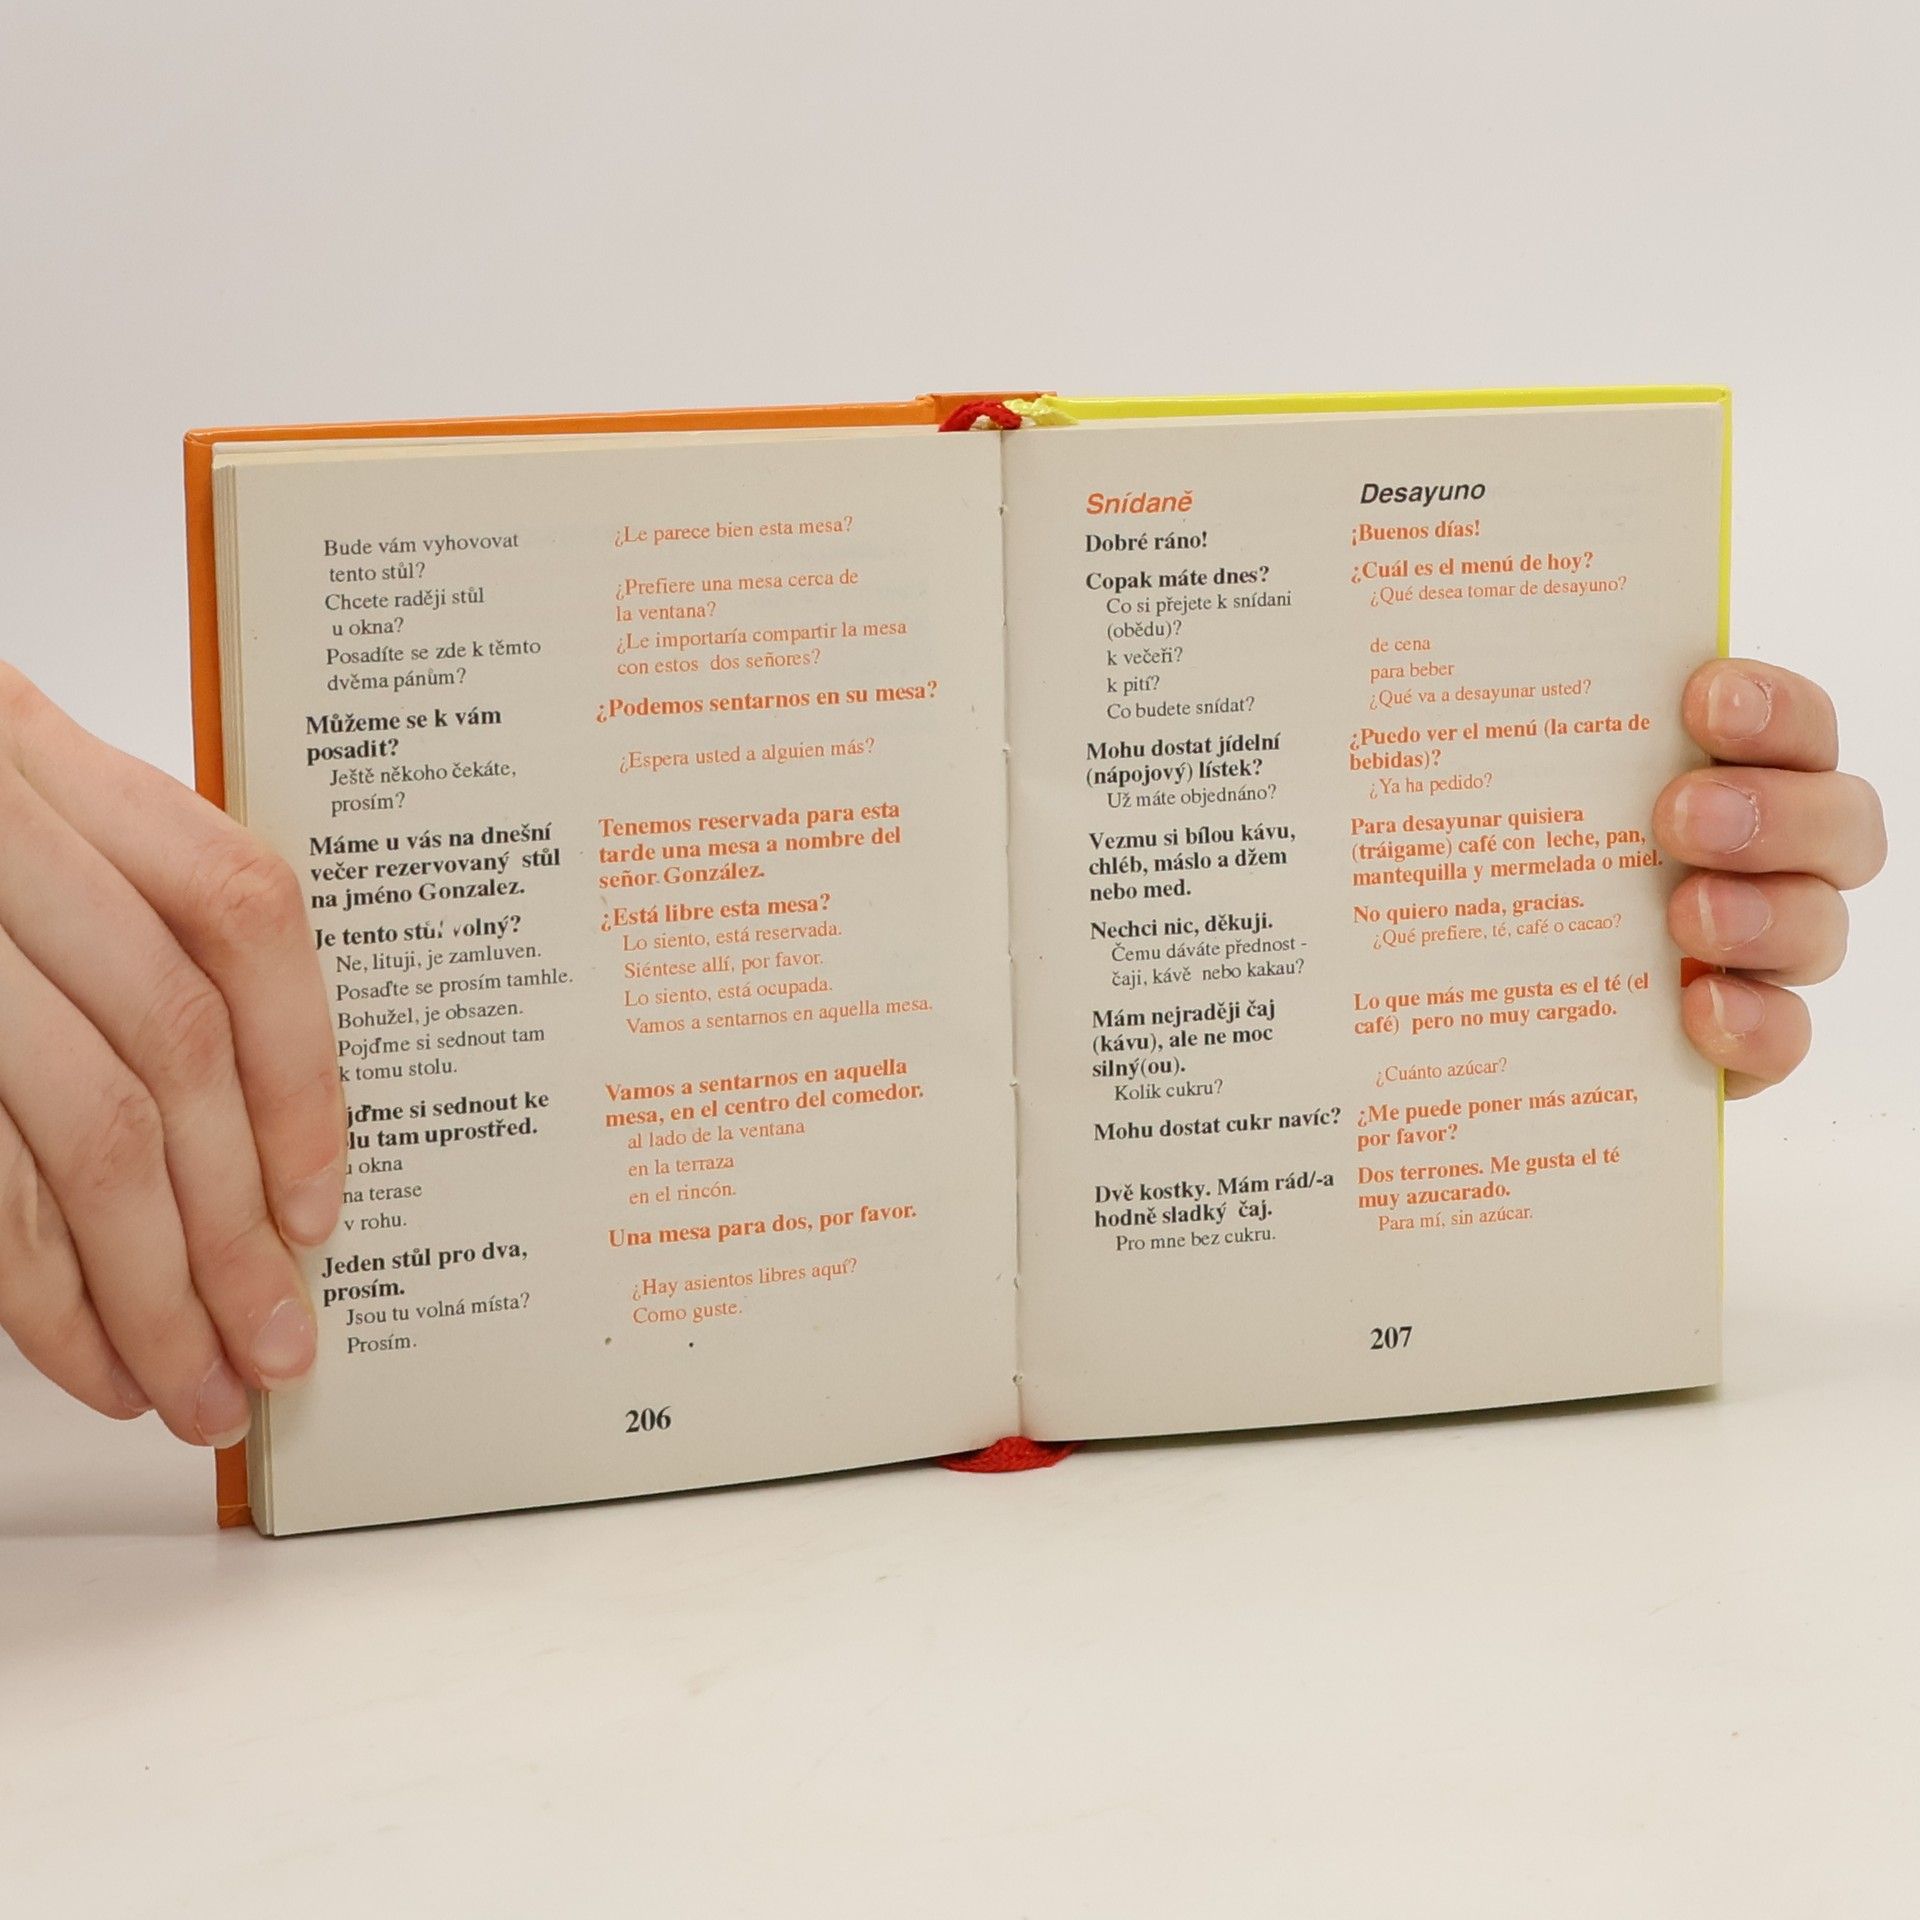 Bude vám vyhovovat
tento stůl?
Chcete raději stůl
u okna?
Posadíte se zde k těmto
dvěma pánům?
Můžeme se k vám
posadit?
Ještě někoho čekáte,
prosím?
Máme u vás na dnešní
večer rezervovaný stůl
na jméno Gonzalez.
Je tento stůl volný?
Ne, lituji, je zamluven.
Posaďte se prosím tamhle.
Bohužel, je obsazen.
Pojďme si sednout tam
k tomu stolu.
jďme si sednout ke
lu tam uprostřed.
u okna
na terase
v rohu.
Jeden stůl pro dva,
prosím.
Jsou tu volná místa?
Prosím.
¿Le parece bien esta mesa?
¿Prefiere una mesa cerca de
la ventana?
¿Le importaría compartir la mesa
con estos dos señores?
¿Podemos sentarnos en su mesa?
¿Espera usted a alguien más?
Tenemos reservada para esta
tarde una mesa a nombre del
señor González.
¿Está libre esta mesa?
Lo siento, está reservada.
Siéntese allí, por favor.
Lo siento, está ocupada.
Vamos a sentarnos en aquella mesa.
Vamos a sentarnos en aquella
mesa, en el centro del comedor.
al lado de la ventana
en la terraza
en el rincón.
Una mesa para dos, por favor.
¿Hay asientos libres aquí?
Como guste.
206
Snídaně
Dobré ráno!
Copak máte dnes?
Co si přejete k snídani
(obědu)?
k večeři?
k pití?
Co budete snídat?
Mohu dostat jídelní
(nápojový) lístek?
Už máte objednáno?
Vezmu si bílou kávu,
chléb, máslo a džem
nebo med.
Nechci nic, děkuji.
Čemu dáváte přednost -
čaji, kávě nebo kakau?
Mám nejraději čaj
(kávu), ale ne moc
silný(ou).
Kolik cukru?
Mohu dostat cukr navíc?
Dvě kostky. Mám rád/-a
hodně sladký čaj.
Pro mne bez cukru.
Desayuno
¡Buenos días!
¿Cuál es el menú de hoy?
¿Qué desea tomar de desayuno?
de cena
para beber
¿Qué va a desayunar usted?
¿Puedo ver el menú (la carta de
bebidas)?
¿Ya ha pedido?
Para desayunar quisiera
(tráigame) café con leche, pan,
mantequilla y mermelada o miel.
No quiero nada, gracias.
¿Qué prefiere, té, café o cacao?
Lo que más me gusta es el té (el
café) pero no muy cargado.
¿Cuánto azúcar?
¿Me puede poner más azúcar,
por favor?
Dos terrones. Me gusta el té
muy azucarado.
Para mí, sin azúcar.
207